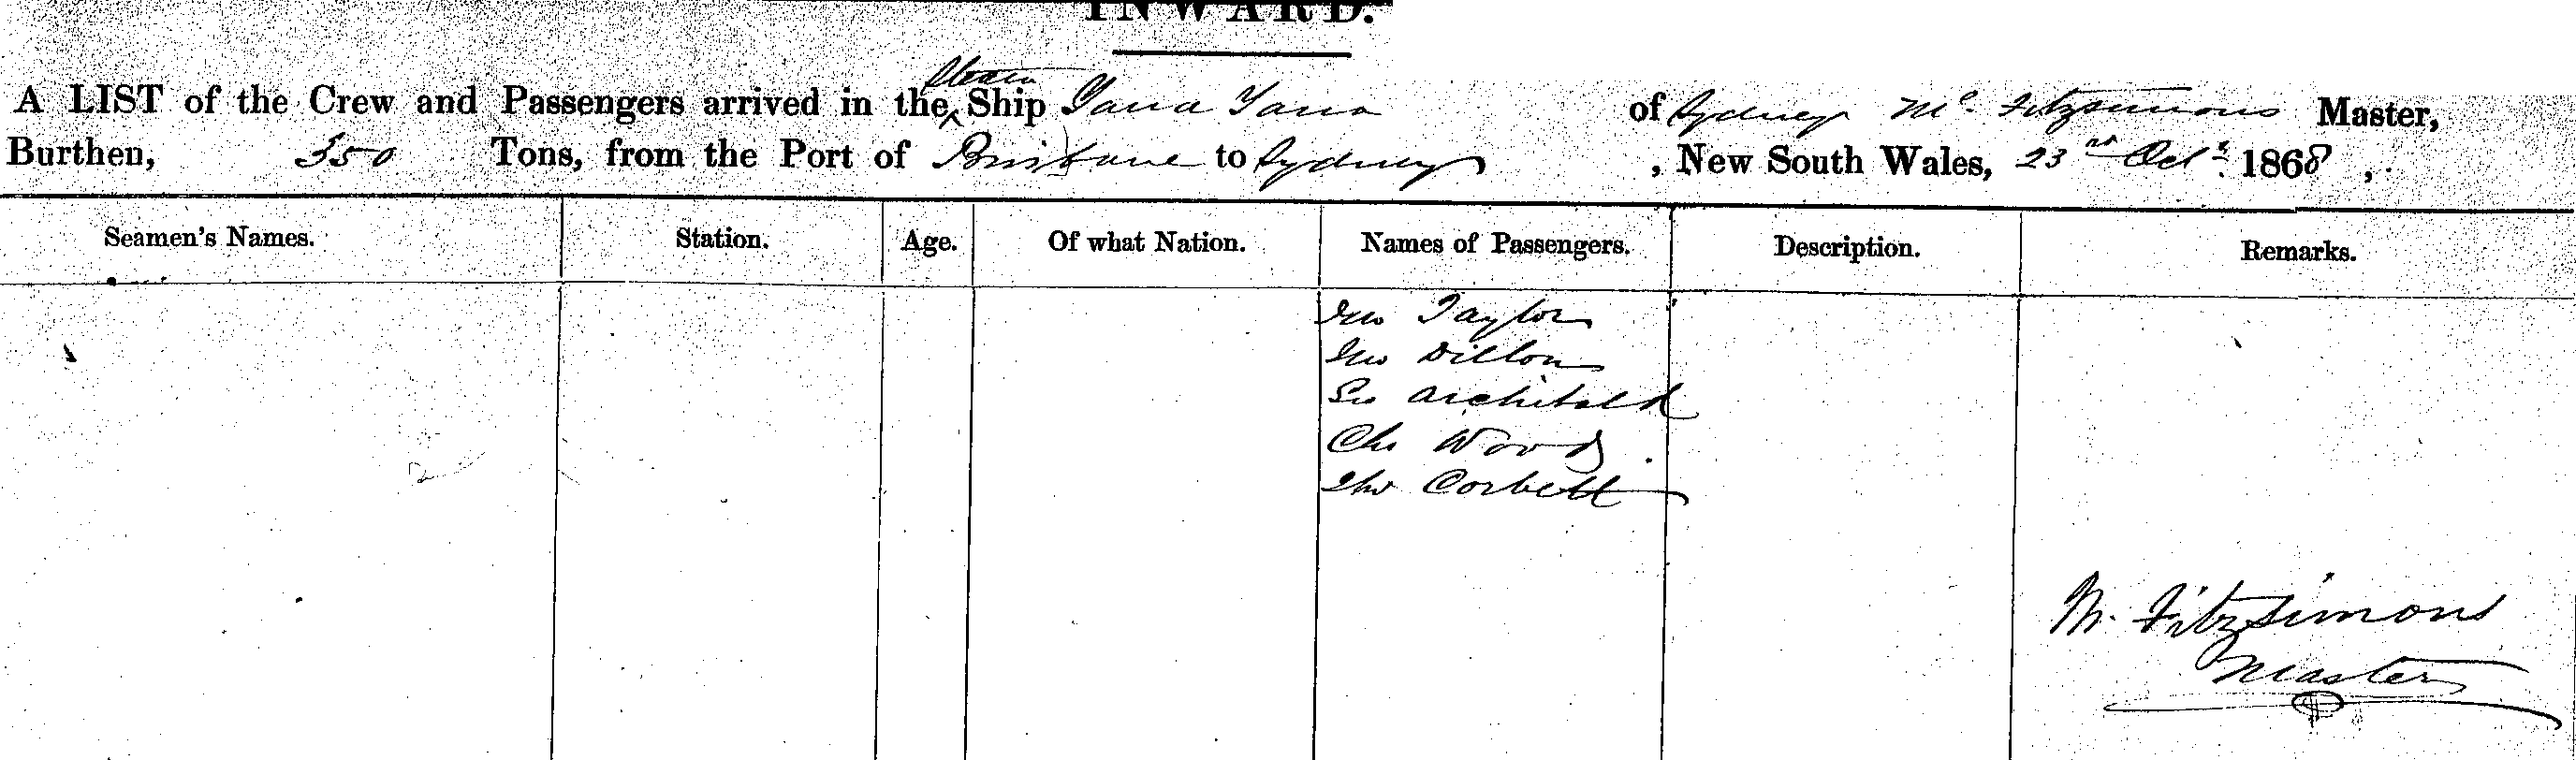 INWARD.
Steam
A LIST of the Crew and Passengers arrived in the Ship Yarra Yarra of Sydney Mc Fitzsimons Master,
Burthen, 350 Tons, from the Port of Brisbane to Sydney, New South Wales, 23rd Octr. 1868,
Seamen's Names. Station. Age. Of what Nation. Names of Passengers. Description. Remarks.
Jno Taylor
Jno Dillon
Geo Archibald
Chs Wood
Thos Corbett
M. Fitzsimons
Master